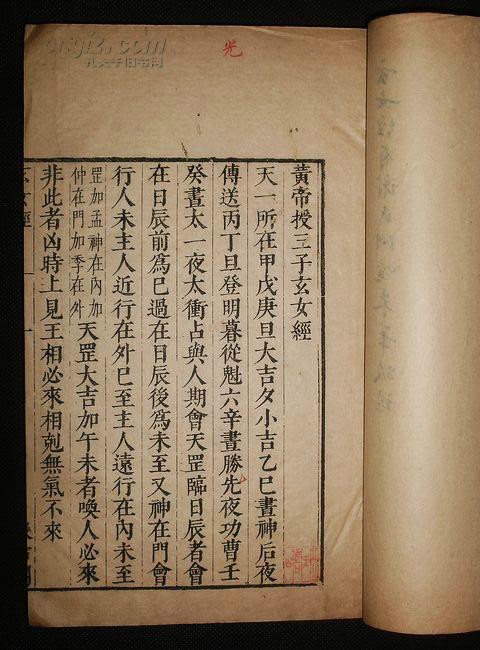 黃帝授三子玄女經
天一所在甲戊庚旦大吉夕小吉乙巳晝神后夜
傳送丙丁旦登明暮從魁六辛晝勝先夜功曹壬
癸晝太一夜太衝占與人期會天罡臨日辰者會
在日辰前為已過在日辰後為未至又神在門會
行人未主人近行在外已至主人遠行在內未至
罡加孟神在內加
仲在門加季在外
天罡大吉加午未者喚人必來
非此者凶時上見王相必來相剋無氣不來
玄女經
一
光
孔夫子旧书网